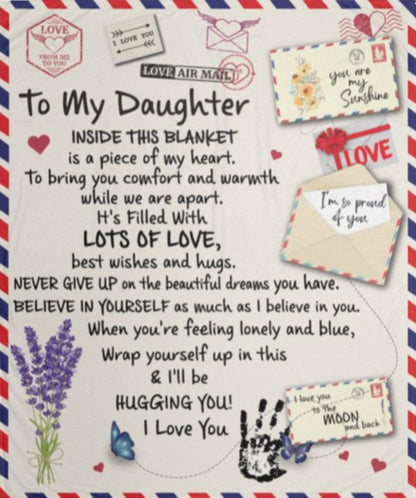 LOVE
FROM ME
TO YOU
I LOVE YOU
LOVE AIR MAIL
you are
my
Sunshine
To My Daughter
LOVE
INSIDE THIS BLANKET
is a piece of my heart.
To bring you comfort and warmth
while we are apart.
I'm so proud
of you
It's Filled With
LOTS OF LOVE,
best wishes and hugs.
NEVER GIVE UP on the beautiful dreams you have.
BELIEVE IN YOURSELF as much as I believe in you.
When you're feeling lonely and blue,
Wrap yourself up in this
& I'll be
HUGGING YOU!
I Love You
I love you
to the
MOON
and back